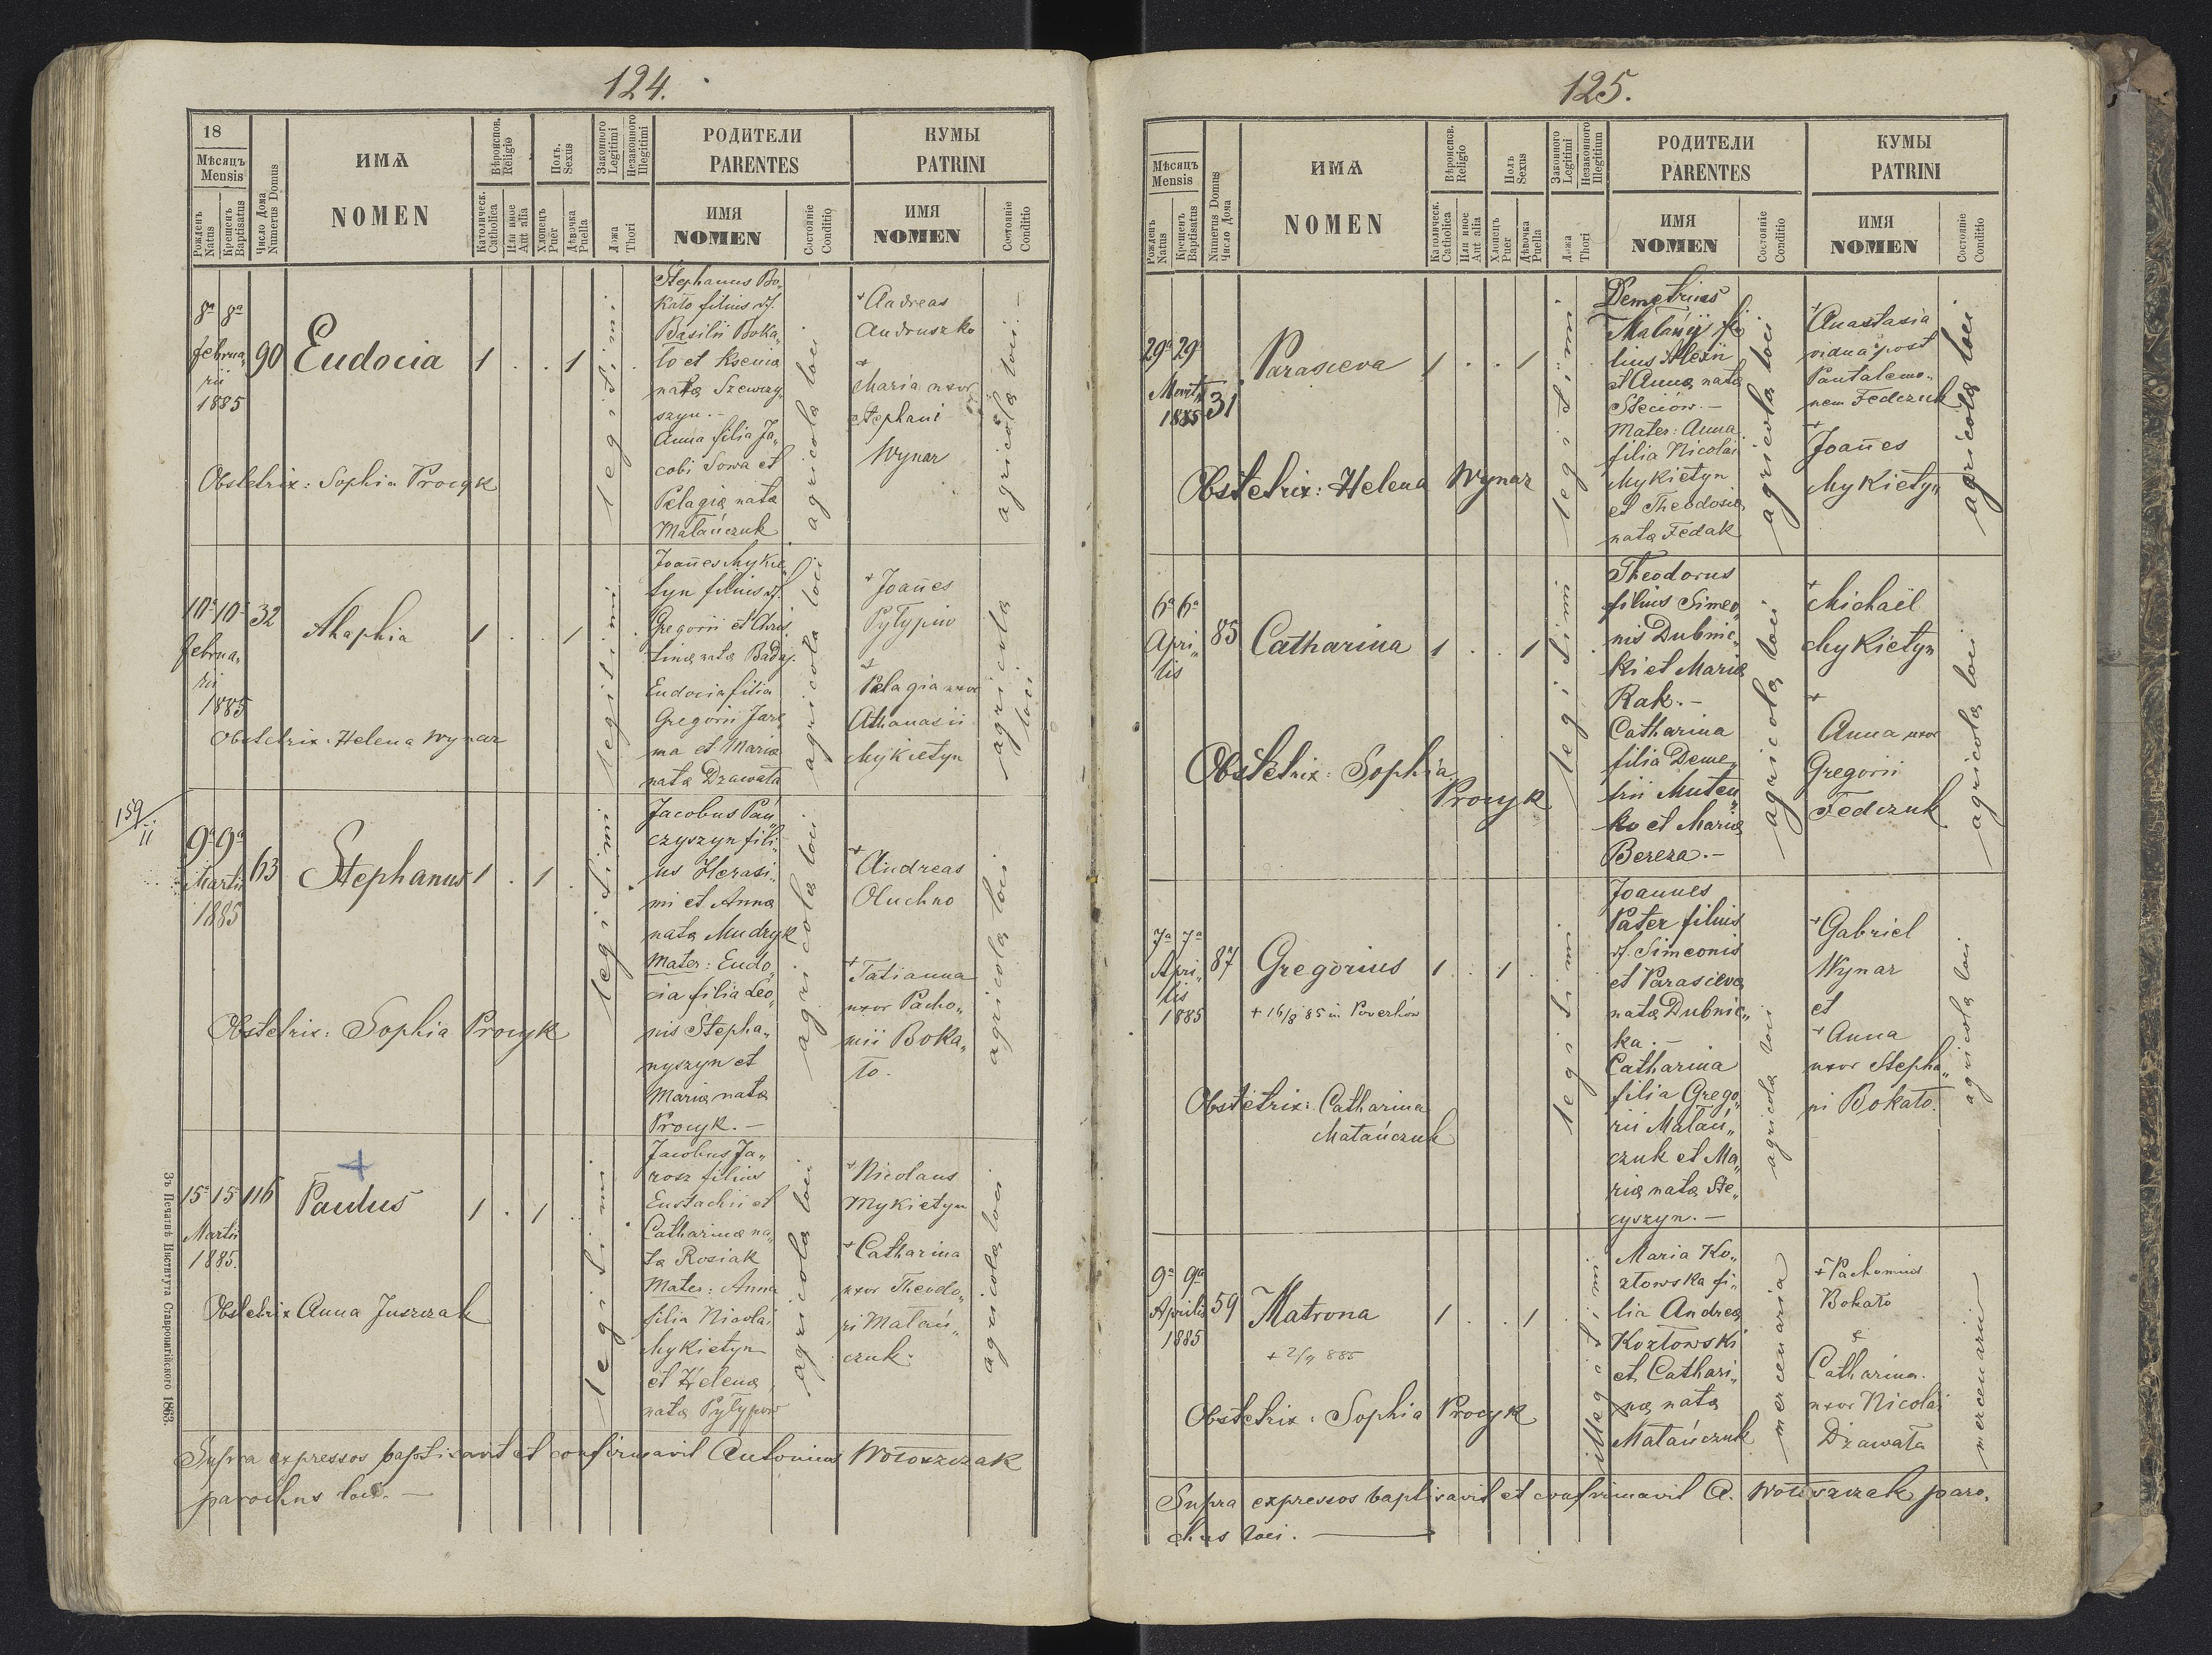 124.
18
Мѣсяцъ
Mensis
Рожденъ
Natus
Крещенъ
Baptisatus
Число Дома
Numerus Domus
ИМѦ
NOMEN
Вѣроиспов.
Religio
Католическ.
Catholica
Или иное
Aut alia
Полъ.
Sexus
Хлопецъ
Puer
Дѣвочка
Puella
Законного
Legitimi
Незаконного
Illegitimi
Ложа
Thori
РОДИТЕЛИ
PARENTES
ИМЯ
NOMEN
Состояніе
Conditio
КУМЫ
PATRINI
ИМЯ
NOMEN
Состояніе
Conditio
8ª 8ª
februa„
rii
1885
90
Eudocia
1 . . 1
legitimi
Stephanus Bo„
kało filius
Basilii Boka„
ło et Ksenia
nata Szewczy„
szyn.-
Anna filia Ja„
cobi Sowa et
Pelagia nata
Małańczuk
agricola loci
+ Andreas
Andruszko
+
Maria uxor
Stephani
Wynar
agricola loci
Obstetrix: Sophia Procyk
10ª 10ª
februa„
rii
1885
32
Ahaphia
1 . . 1
legitimi
Joañes Mykie„
tyn filius
Gregorii et Chris„
tina nata Baday.
Eudocia filia
Gregorii Jare„
ma et Maria
nata Dzawała
agricola loci
+ Joañes
Pyłypiw
+
Pelagia uxor
Athanasii
Mykietyn
agricola
loci
Obstetrix: Helena Wynar
159/11
9ª 9ª
Martii
1885
63
Stephanus
1 . 1 .
legitimi
Jacobus Pań„
czyszyn fili„
us Herasi„
mi et Anna
nata Mudryk
Mater: Eudo„
cia filia Leo„
nis Stepha„
nyszyn et
Maria nata
Procyk.-
agricola loci
+ Andreas
Oluchno
+ Tatianna
uxor Pacho„
mii Boka„
ło.
agricola loci
Obstetrix: Sophia Procyk
15ª 15ª
Martii
1885.
116
+
Paulus
1 . 1 .
legitimi
Jacobus Ja„
rosz filius
Eustachii et
Catharina na„
ta Rosiak
Mater: Anna
filia Nicolai
Mykietyn
et Helena
nata Pyłypow
agricola loci
+ Nicolaus
Mykietyn
+ Catharina
uxor Theodo„
ri Małań„
czuk.
agricola loci
Obstetrix Anna Juszczak
Supra expressos baptisavit et confirmavit Antonius Wołoszczak
parochus loci.-
Зъ Печатнѣ Института Ставропигійского 1863.
125.
Мѣсяцъ
Mensis
Рожденъ
Natus
Крещенъ
Baptisatus
Numerus Domus
Число Дома
ИМѦ
NOMEN
Вѣроиспов.
Religio
Католическ.
Catholica
Или иное
Aut alia
Полъ
Sexus
Хлопецъ
Puer
Дѣвочка
Puella
Законного
Legitimi
Незаконного
Illegitimi
Ложа
Thori
РОДИТЕЛИ
PARENTES
ИМЯ
NOMEN
Состояніе
Conditio
КУМЫ
PATRINI
ИМЯ
NOMEN
Состояніе
Conditio
29ª 29ª
Martii
1885
31
Parasceva
1 . . 1
legitimi
Demetrius
Małańij fi„
lius Alexii
et Anna nata
Steciów.-
Mater: Anna
filia Nicolai
Mykietyn
et Theodosia
nata Fedak
agricola loci
+ Anastasia
vidua post
Pantalemo„
nem Fedczuk
+
Joañes
Mykietyn
agricola loci
Obstetrix: Helena Wynar
6ª 6ª
Apri„
lis
85
Catharina
1 . . 1
legitimi
Theodorus
filius Simeo„
nis Dubnic„
ki et Maria
Rak.-
Catharina
filia Deme„
trii Muten„
ko et Maria
Bereza.-
agricola loci
+ Michaël
Mykietyn
+
Anna uxor
Gregorii
Fedczuk
agricola loci
Obstetrix: Sophia
Procyk
7ª 7ª
Apri„
lis
1885
87
Gregorius
+ 16/8 85 in Poverhów
1 . 1 .
legitimi
Joannes
Pater filius
Simeonis
et Parasceva
nata Dubnic„
ka.-
Catharina
filia Grego„
rii Małań„
czuk et Ma„
ria nata Ste„
cyszyn.-
agricola loci
+ Gabriel
Wynar
et
+ Anna
uxor Stepha„
ni Bokało.
agricola loci
Obstetrix: Catharina
Małańczuk
9ª 9ª
Aprilis
1885
59
Matrona
+ 2/7 885
1 . . 1
illegitimi
Maria Ko„
złowska fi„
lia Andrea
Kozłowski
et Cathari„
na nata
Małańczuk
mercenaria
+ Pachomius
Bokało
&
Catharina
uxor Nicolai
Dzawała
mercenarii
Obstetrix: Sophia Procyk
Supra expressos baptisavit et confirmavit A. Wołoszczak paro„
chus loci.